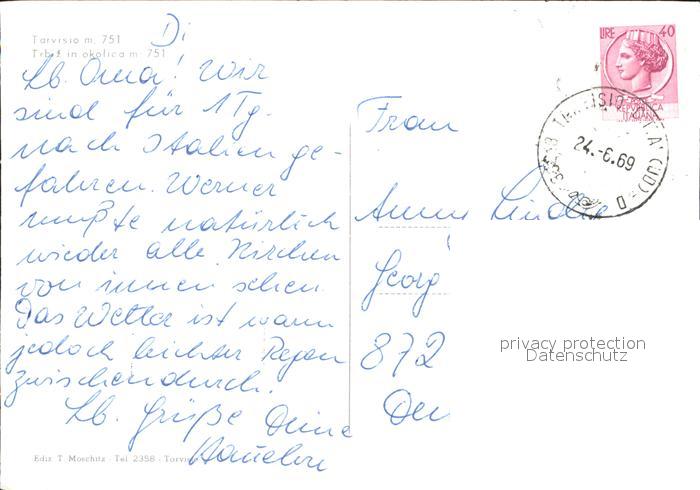 Di
Tarvisio m. 751
Trbiž in okolica m. 751
Lb. Oma! Wir
sind für 1 Tg.
nach Italien ge-
fahren. Werner
mußte natürlich
wieder alle Kirchen
von innen sehen.
Das Wetter ist warm
jedoch leichter Regen
zwischendurch.
Lb. Grüße Deine
Ediz. T. Moschitz - Tel 2358 - Tarvisio
LIRE 40
REPVBBLICA
ITALIANA
TARVISIO (UD)
24.-6.69
Frau
Anna
Georg
872
privacy protection
Datenschutz